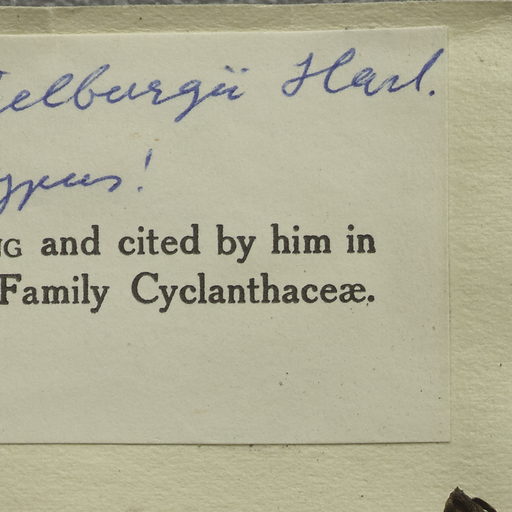 elburgii Harl.
ypus!
NG and cited by him in
Family Cyclanthaceæ.